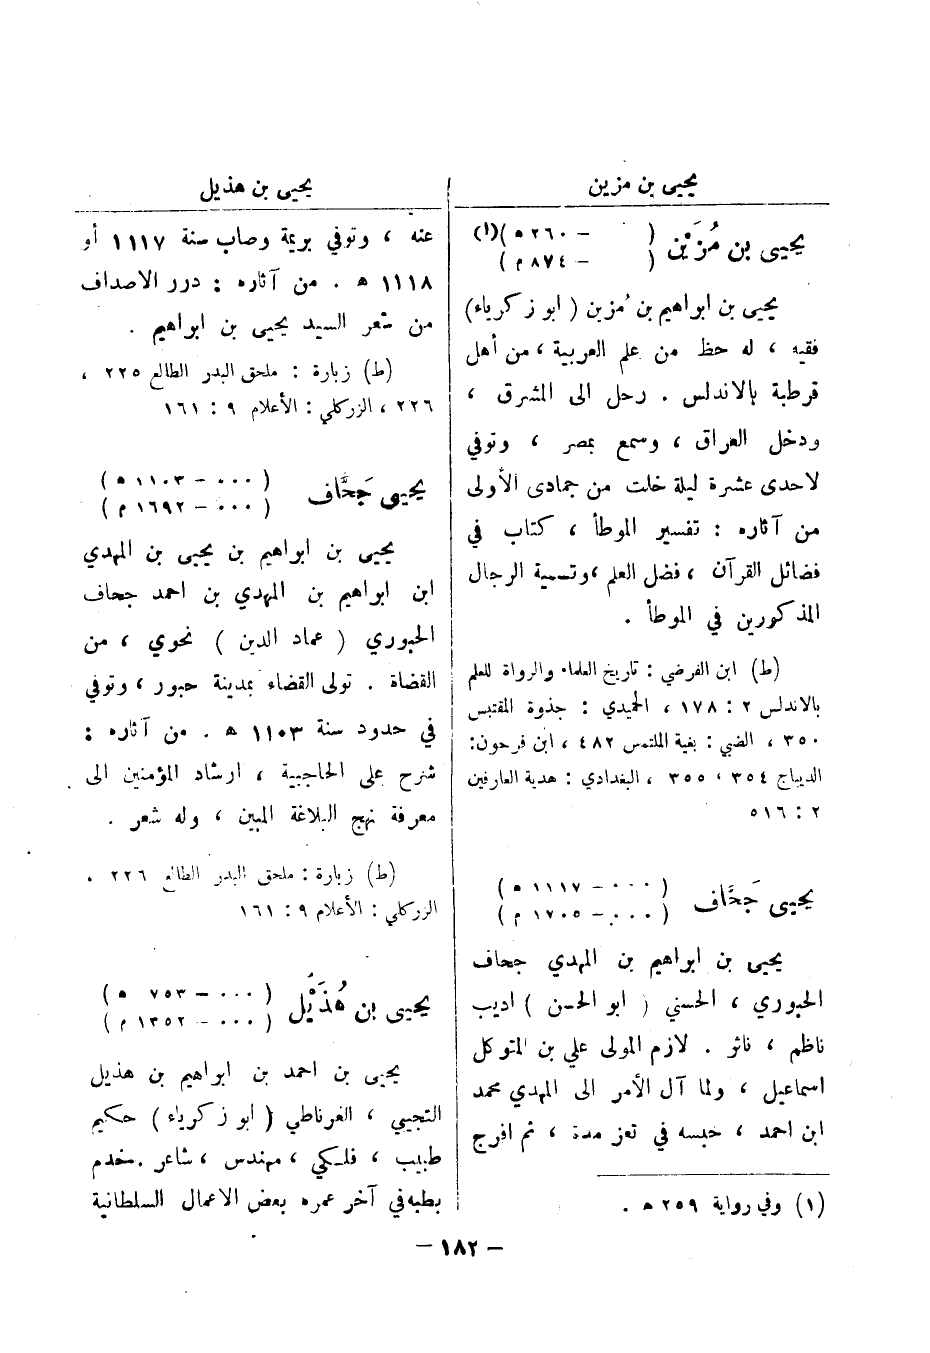 يحيى بن مزين
يحيى بن مُزَيْن ( - ٢٦٠ ه )(١)
( - ٨٧٤ م )
يحيى بن ابراهيم بن مزين ( ابو زكرياء )
فقيه ، له حظ من علم العربية ، من أهل
قرطبة بالاندلس . رحل الى المشرق ،
ودخل العراق ، وسمع بمصر ، وتوفي
لاحدى عشرة ليلة خلت من جمادى الأولى
من آثاره : تفسير الموطأ ، كتاب في
فضائل القرآن ، فضل العلم ، وتسمية الرجال
المذكورين في الموطأ .
(ط) ابن الفرضي : تاريخ العلماء والرواة للعلم
بالاندلس ٢ : ١٧٨ ، الحميدي : جذوة المقتبس
٣٥٠ ، الضبي : بغية الملتمس ٤٨٢ ، ابن فرحون :
الديباج ٣٥٤ ، ٣٥٥ ، البغدادي : هدية العارفين
٢ : ٥١٦
يحيى جَحَّاف ( ٠٠٠ - ١١١٧ ه )
( ٠٠٠ - ١٧٠٥ م )
يحيى بن ابراهيم بن المهدي جحاف
الحبوري ، الحسني ( ابو الحسن ) اديب
ناظم ، ناثر . لازم المولى علي بن المتوكل
اسماعيل ، ولما آل الأمر الى المهدي محمد
ابن احمد ، حبسه في تعز مدة ، ثم افرج
(١) وفي رواية ٢٥٩ ه .
يحيى بن هذيل
عنه ، وتوفي بريمة وصاب سنة ١١١٧ أو
١١١٨ ه . من آثاره : درر الاصداف
من شعر السيد يحيى بن ابراهيم .
(ط) زبارة : ملحق البدر الطالع ٢٢٥ ،
٢٢٦ ، الزركلي : الأعلام ٩ : ١٦١
يحيى جَحَّاف ( ٠٠٠ - ١١٠٣ ه )
( ٠٠٠ - ١٦٩٢ م )
يحيى بن ابراهيم بن يحيى بن المهدي
ابن ابراهيم بن المهدي بن احمد جحاف
الحبوري ( عماد الدين ) نحوي ، من
القضاة . تولى القضاء بمدينة حبور ، وتوفي
في حدود سنة ١١٠٣ ه . من آثاره :
شرح على الحاجبية ، ارشاد المؤمنين الى
معرفة نهج البلاغة المبين ، وله شعر .
(ط) زبارة : ملحق البدر الطالع ٢٢٦ .
الزركلي : الأعلام ٩ : ١٦١
يحيى بن هُذَيْل ( ٠٠٠ - ٧٥٣ ه )
( ٠٠٠ - ١٣٥٢ م )
يحيى بن احمد بن ابراهيم بن هذيل
التجيبي ، الغرناطي ( ابو زكرياء ) حكيم
طبيب ، فلكي ، مهندس ، شاعر . خدم
بطبه في آخر عمره بعض الاعمال السلطانية
- ١٨٢ -